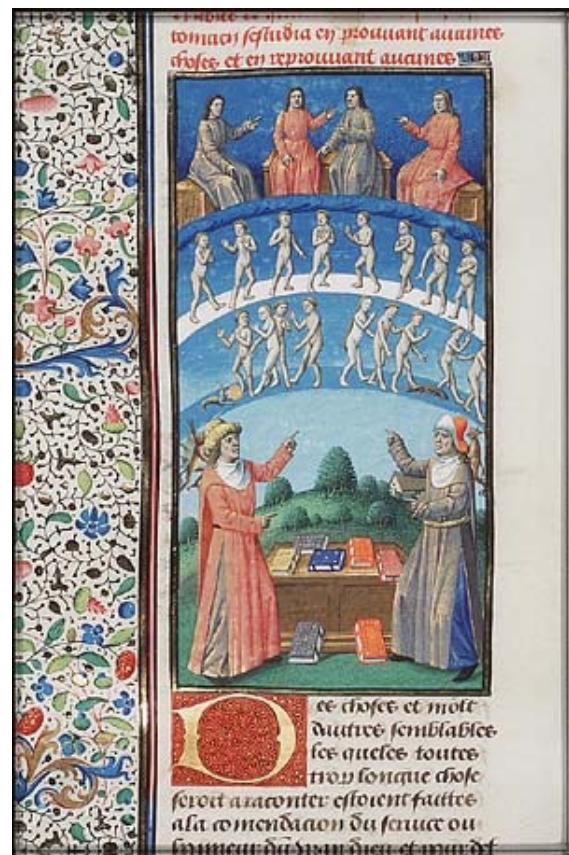 sestudia en prouuant aucunes
choses et en reprouuant aucunes
Des choses et molt
dautres semblables
les queles toutes
trop longue chose
seroit a raconter estoient faittes
a la comendacion du seruice ou
dieu et